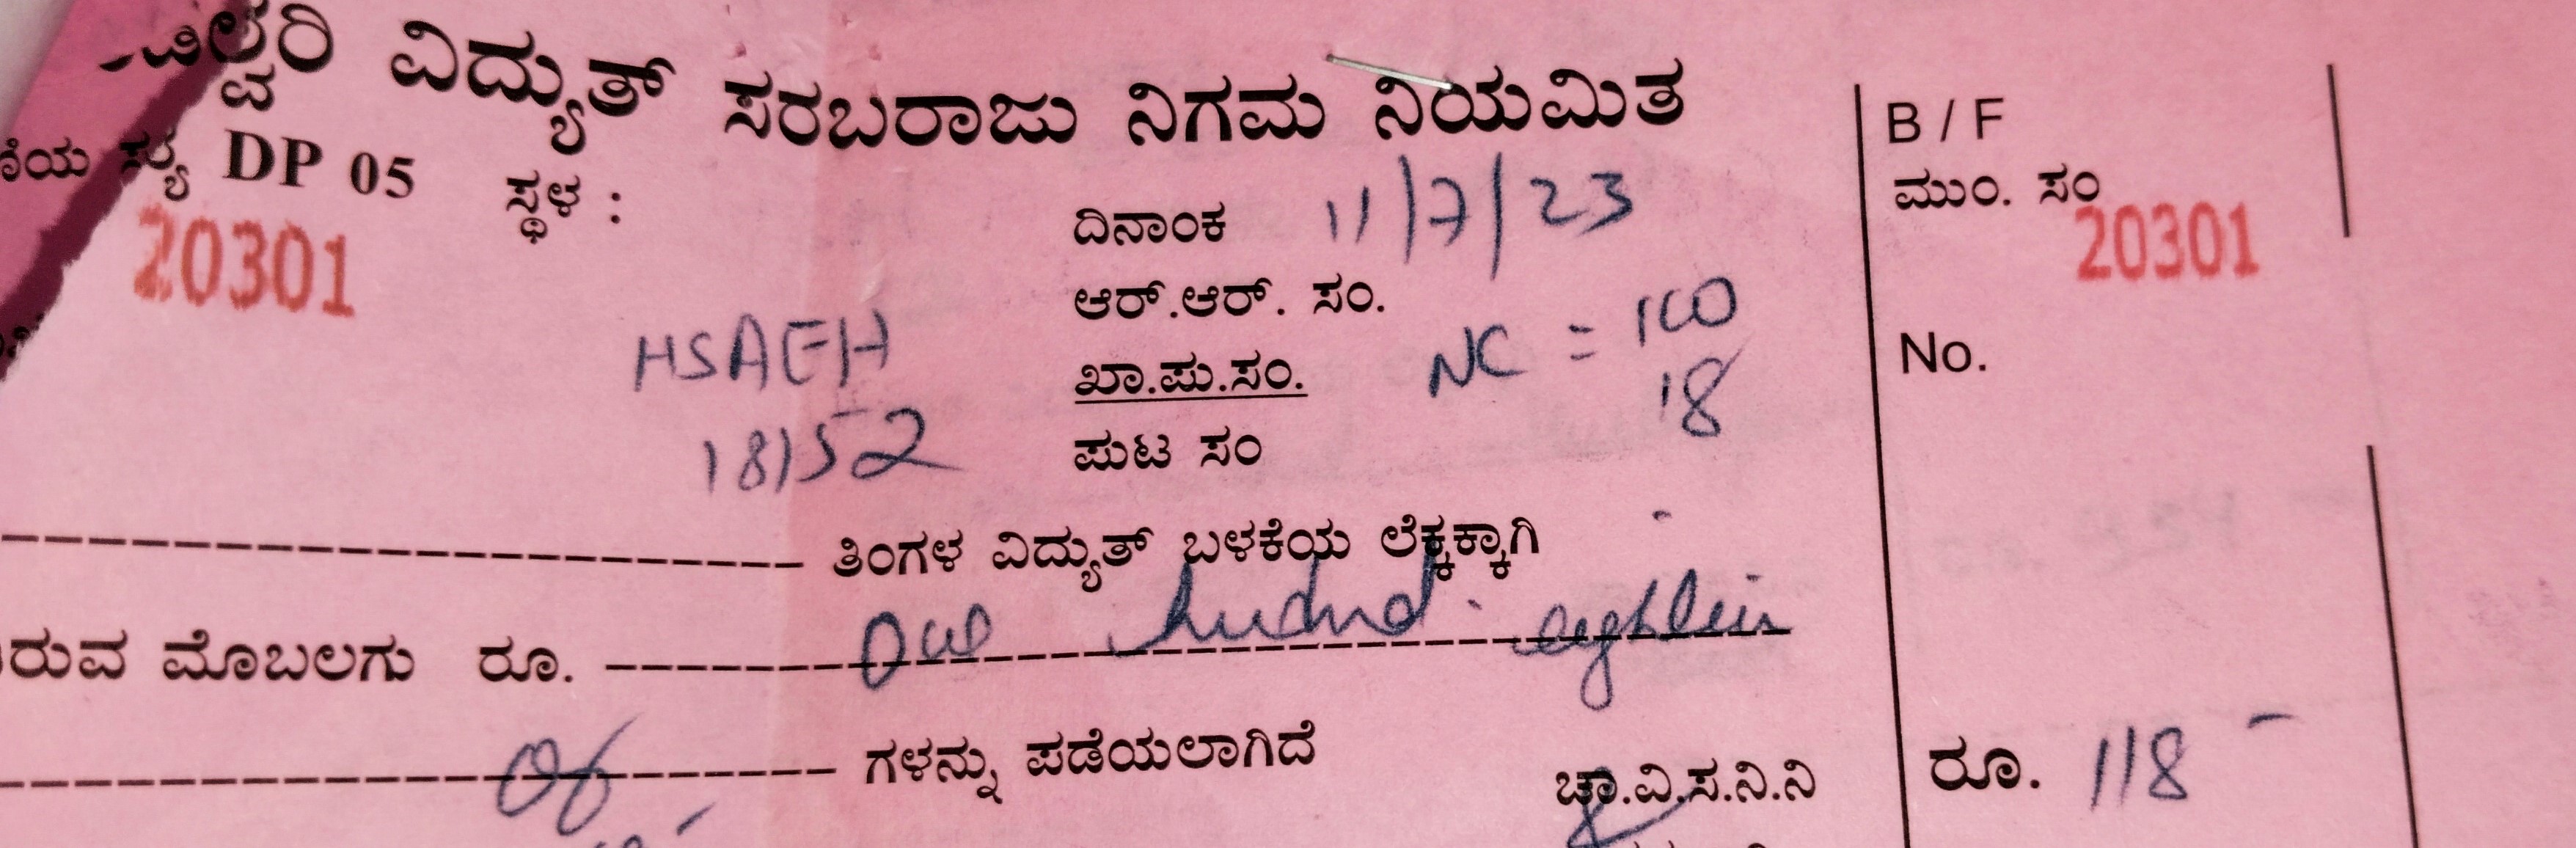 ವಿದ್ಯುತ್ ಸರಬರಾಜು ನಿಗಮ ನಿಯಮಿತ
DP 05 ಸ್ಥಳ :
20301
ದಿನಾಂಕ 11/7/23
ಆರ್.ಆರ್. ಸಂ.
HSAEH
ಖಾ.ಪು.ಸಂ. NC = 100
18
18152
ಪುಟ ಸಂ
ತಿಂಗಳ ವಿದ್ಯುತ್ ಬಳಕೆಯ ಲೆಕ್ಕಕ್ಕಾಗಿ
ಮೊಬಲಗು ರೂ. One hundred
ಗಳನ್ನು ಪಡೆಯಲಾಗಿದೆ
ಚಾ.ವಿ.ಸ.ನಿ.ನಿ
B / F
ಮುಂ. ಸಂ
20301
No.
ರೂ. 118